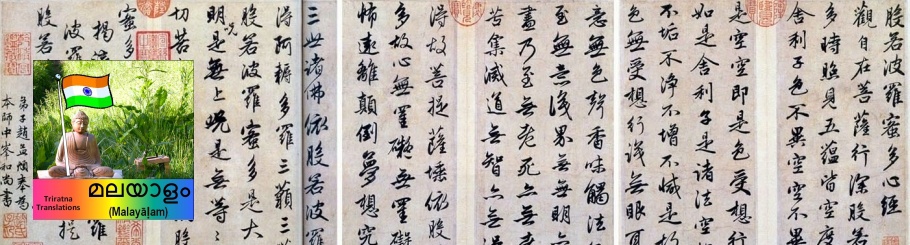 般若波羅蜜多心經
觀自在菩薩行深般若
多時照見五蘊皆空度
舍利子色不異空空不
是空即是色受想
如是舍利子是諸法空
不垢不淨不增不減是故
色無受想行識無眼
意無色聲香味觸法
至無意識界無無明
盡乃至無老死亦無
苦集滅道無智亦無
得故菩提薩埵依般
多故心無罣礙無罣礙
怖遠離顛倒夢想究
三世諸佛依般若波羅
得阿耨多羅三藐三
般若波羅蜜多是大
明咒是無上咒是無等
切苦
般
蜜多
揭
提
波羅
羅
般若
弟子趙孟頫奉為
本師中峯和尚書
Triratna
Translations
മലയാളം
(Malayāḷam)